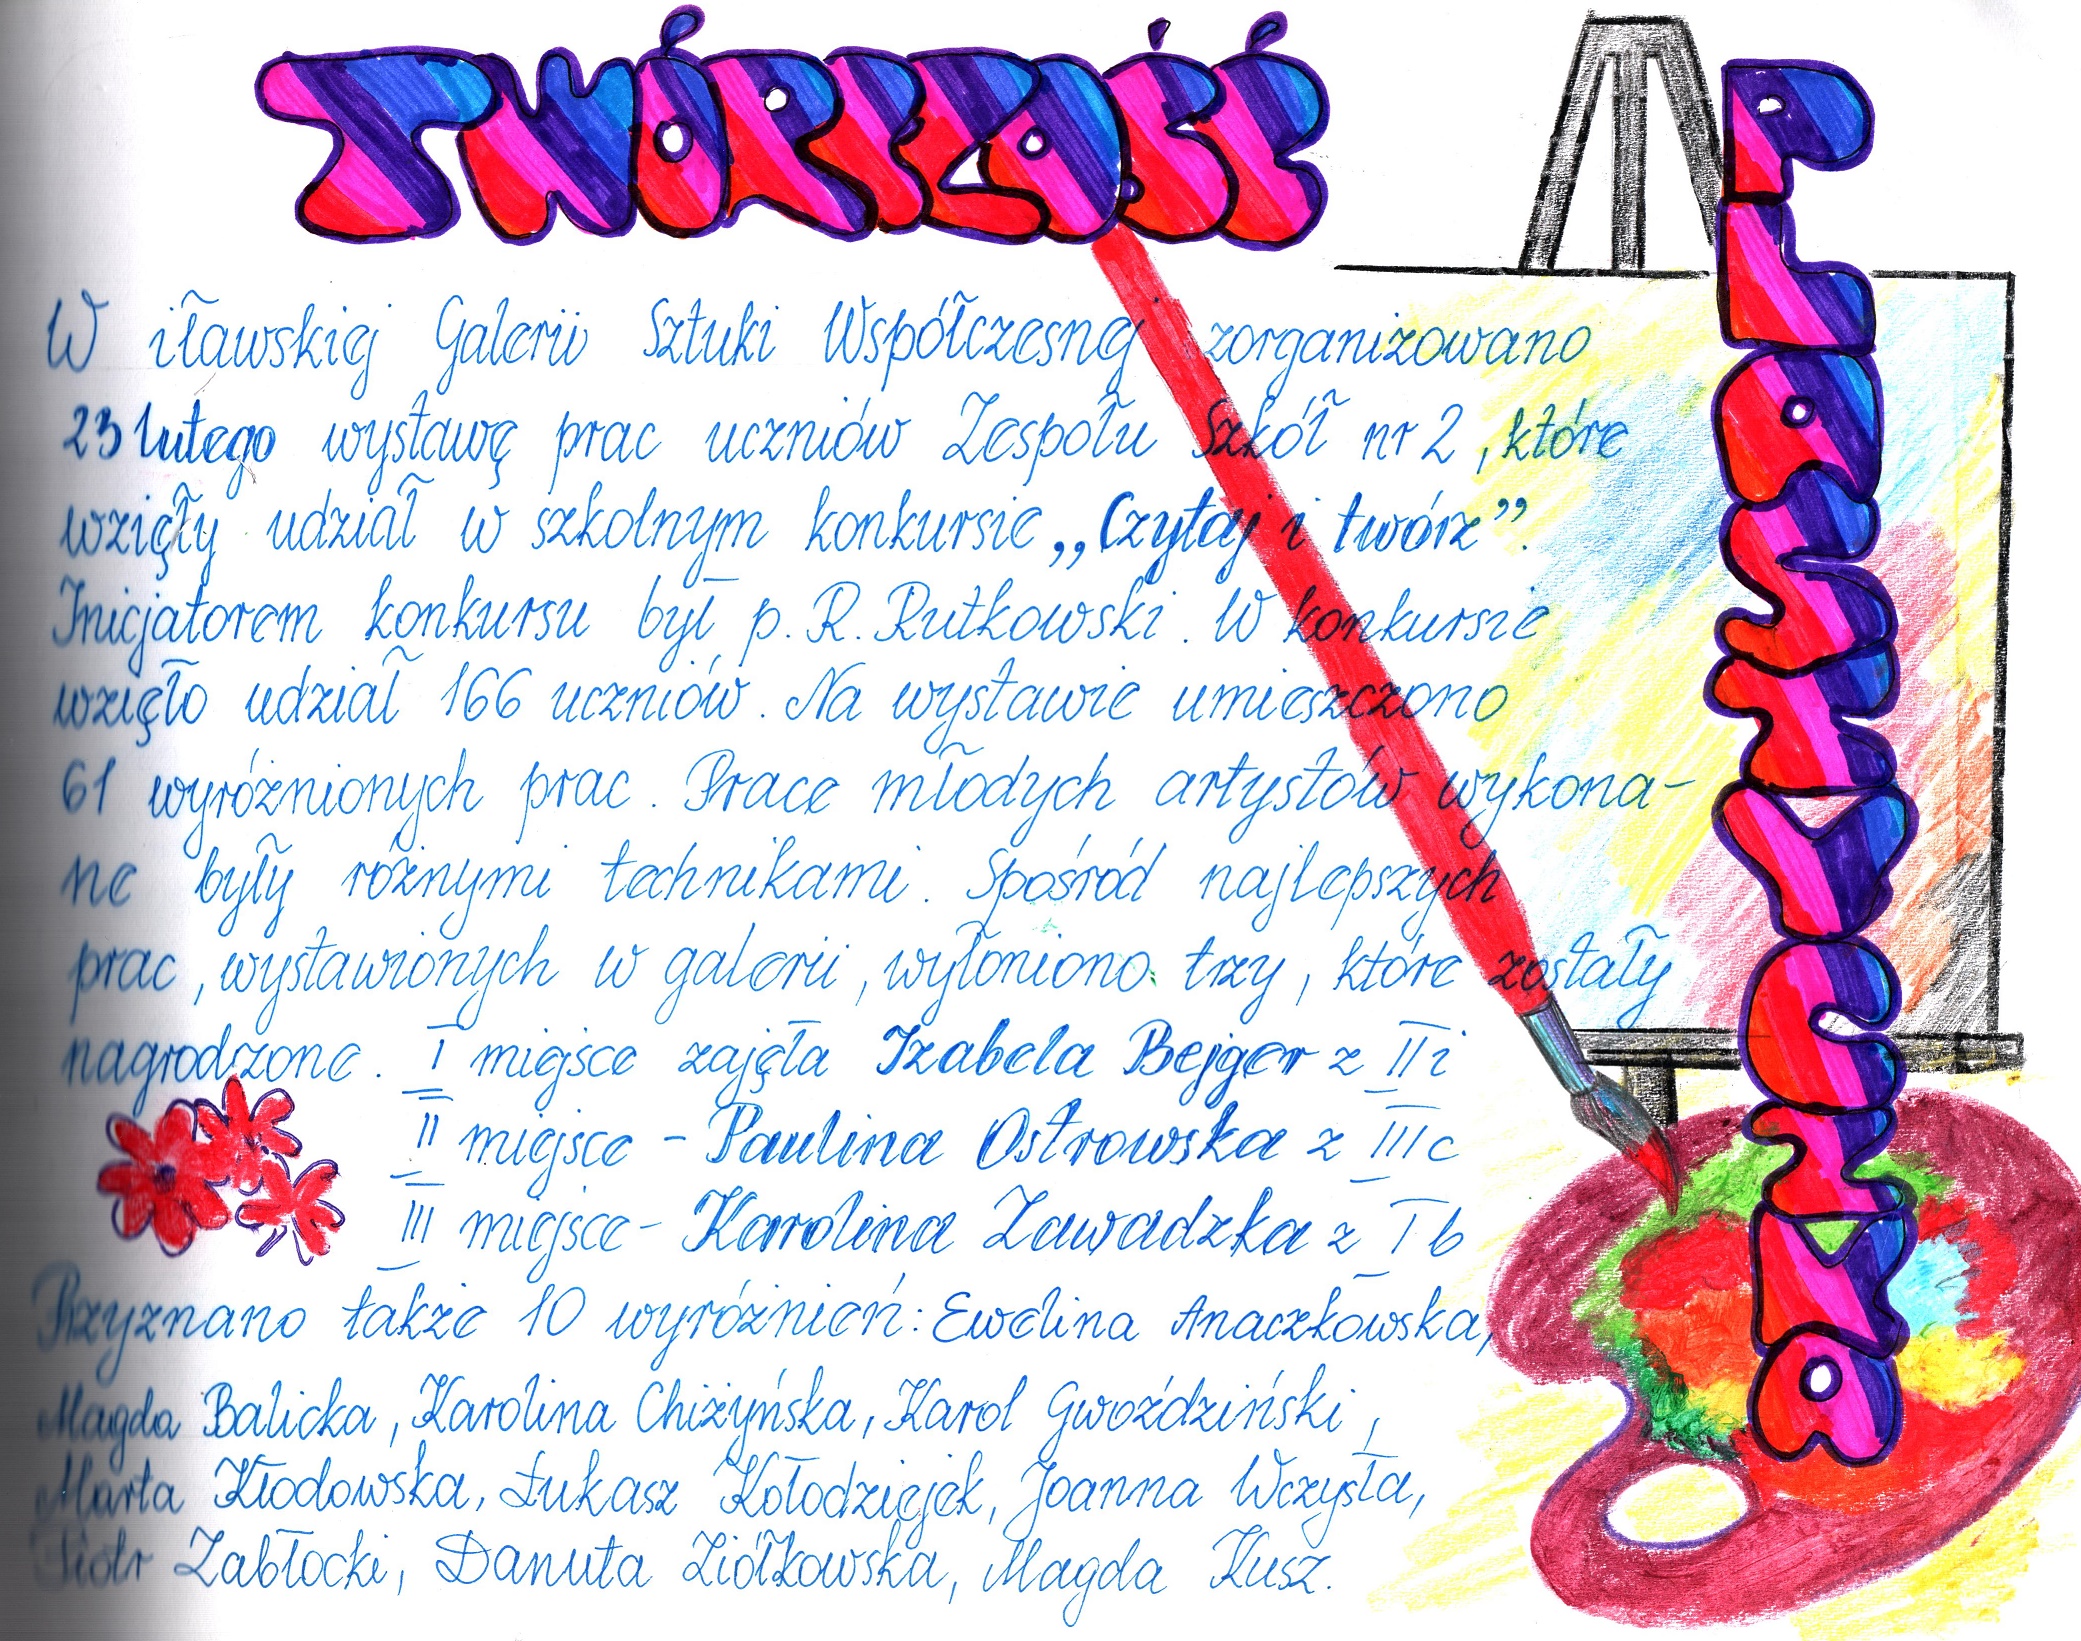 TWÓRCZOŚĆ
PLASTYCZNA
W iławskiej Galerii Sztuki Współczesnej zorganizowano
23 lutego wystawę prac uczniów Zespołu Szkół nr 2, które
wzięły udział w szkolnym konkursie „Czytaj i twórz”.
Inicjatorem konkursu był p. R. Rutkowski. W konkursie
wzięło udział 166 uczniów. Na wystawie umieszczono
61 wyróżnionych prac. Prace młodych artystów wykona-
ne były różnymi technikami. Spośród najlepszych
prac, wystawionych w galerii, wyłoniono trzy, które zostały
nagrodzone. I miejsce zajęła Izabela Bejger z II i
II miejsce - Paulina Ostrowska z III c
III miejsce - Karolina Zawadzka z I b
Przyznano także 10 wyróżnień: Ewelina Anaczkowska,
Magda Balicka, Karolina Chiżyńska, Karol Gwoździński,
Marta Kłodowska, Łukasz Kołodziejek, Joanna Wczysła,
Piotr Zabłocki, Danuta Ziółkowska, Magda Kusz.